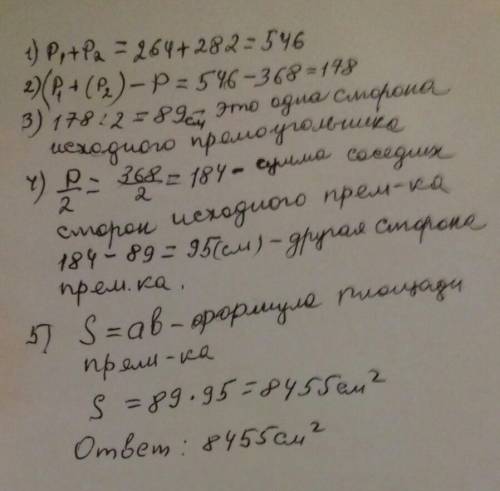 1) P₁+P₂ = 264+282 = 546
2) (P₁+(P₂)-P = 546-368=178
3) 178:2 = 89см это одна сторона
исходного прямоугольника
4) P/2 = 368/2 = 184 - сумма соседних
сторон исходного прям-ка
184 - 89 = 95(см) - другая сторона
прям.ка.
5) S = ab - формула площади
прям-ка
S = 89·95 = 8455см²
Ответ: 8455см²